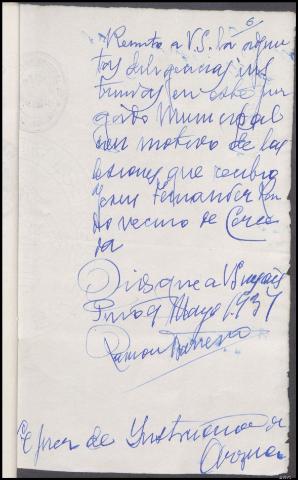 6
Remito a V.S. las adjun
tas diligencias ins
truidas en este Juz
gado Municipal
con motivo de las
lesiones que recibio
Jesus Fernandez
vecino de
Dios gue a V.S. m. años
9 Mayo 1937
Ramon Barreiro
Sr Juez de Instruccion de